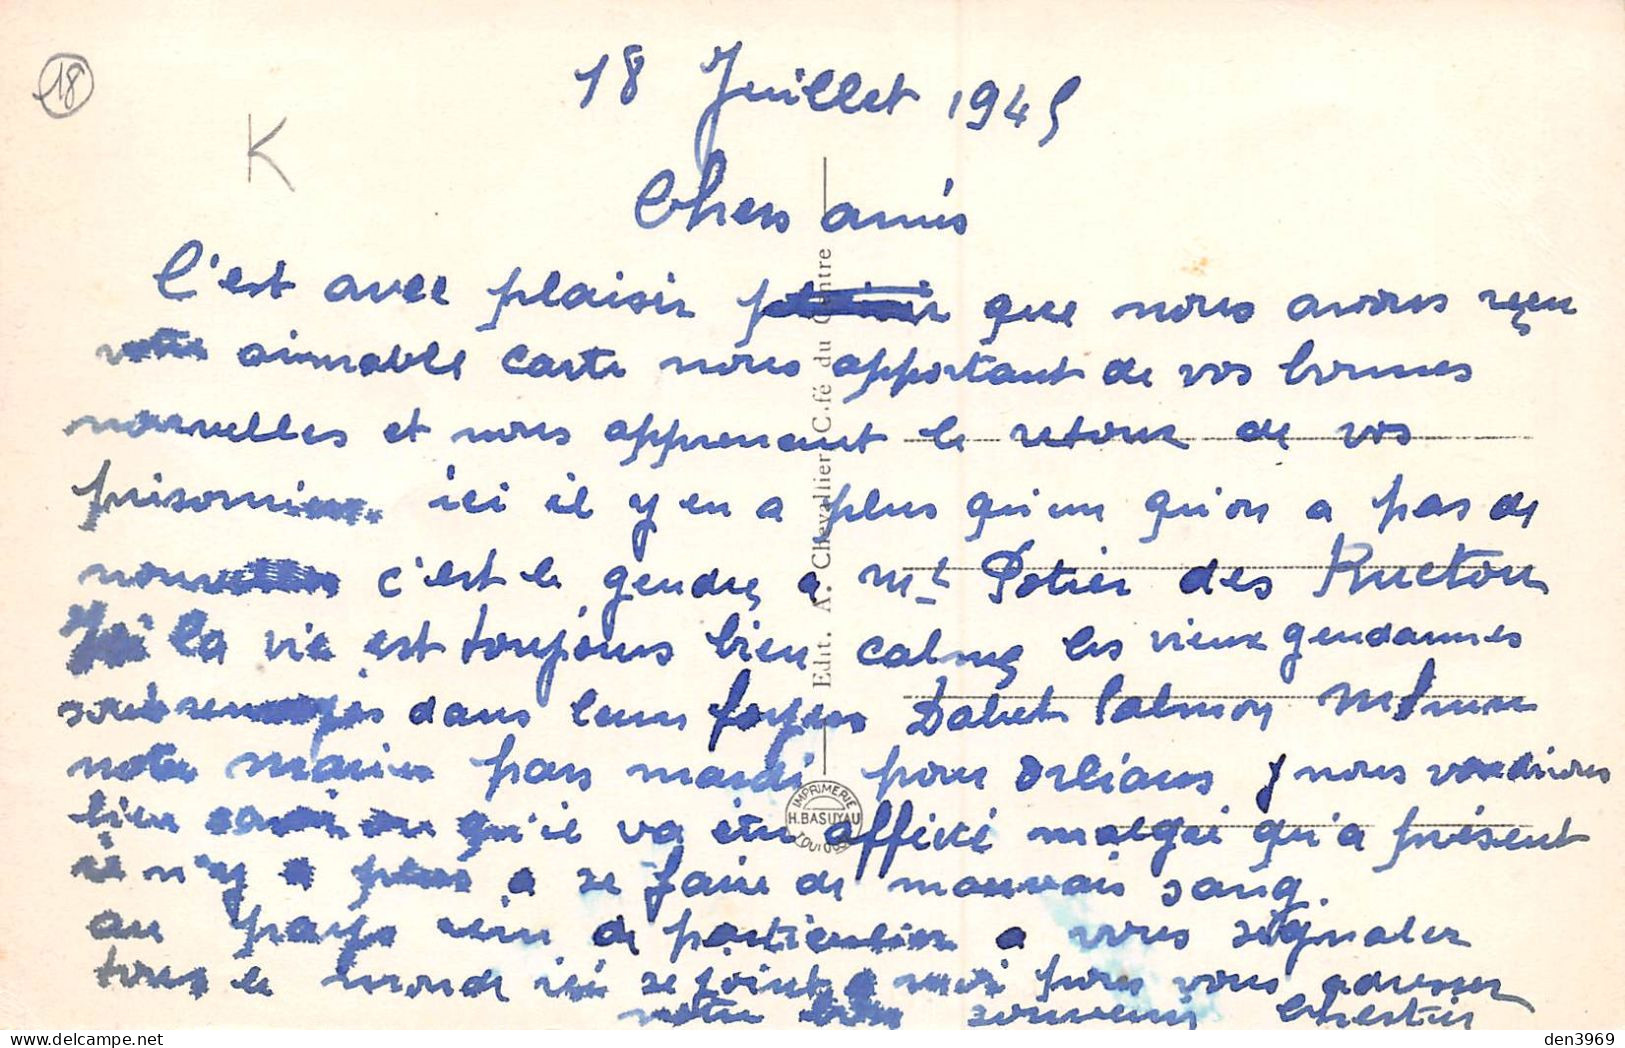 18
K
18 Juillet 1945
Chers amis
C'est avec plaisir que nous avons reçu
votre aimable carte nous apportant de vos bonnes
nouvelles et nous apprenant le retour de vos
prisonniers. ici il y en a plus qu'un qu'on a pas de
nouvelles c'est le gendre a Mr Potier des Ructon
Ici la vie est toujours bien calme les vieux gendarmes
sont dans leur foyers Dabet Palmon
notre pars mardi pour Orlians nous voudrions
bien qu'il va être affecté malgré qu'a présent
il n'y a plus a se faire de mauvais sang.
au pays rien de particulier a vous signaler
tous le monde ici se joint a moi pour vous adresser
notre bon souvenir
Edit. A. Chevallier Café du Centre
IMPRIMERIE H. BASUYAU TOULOUSE
den3969